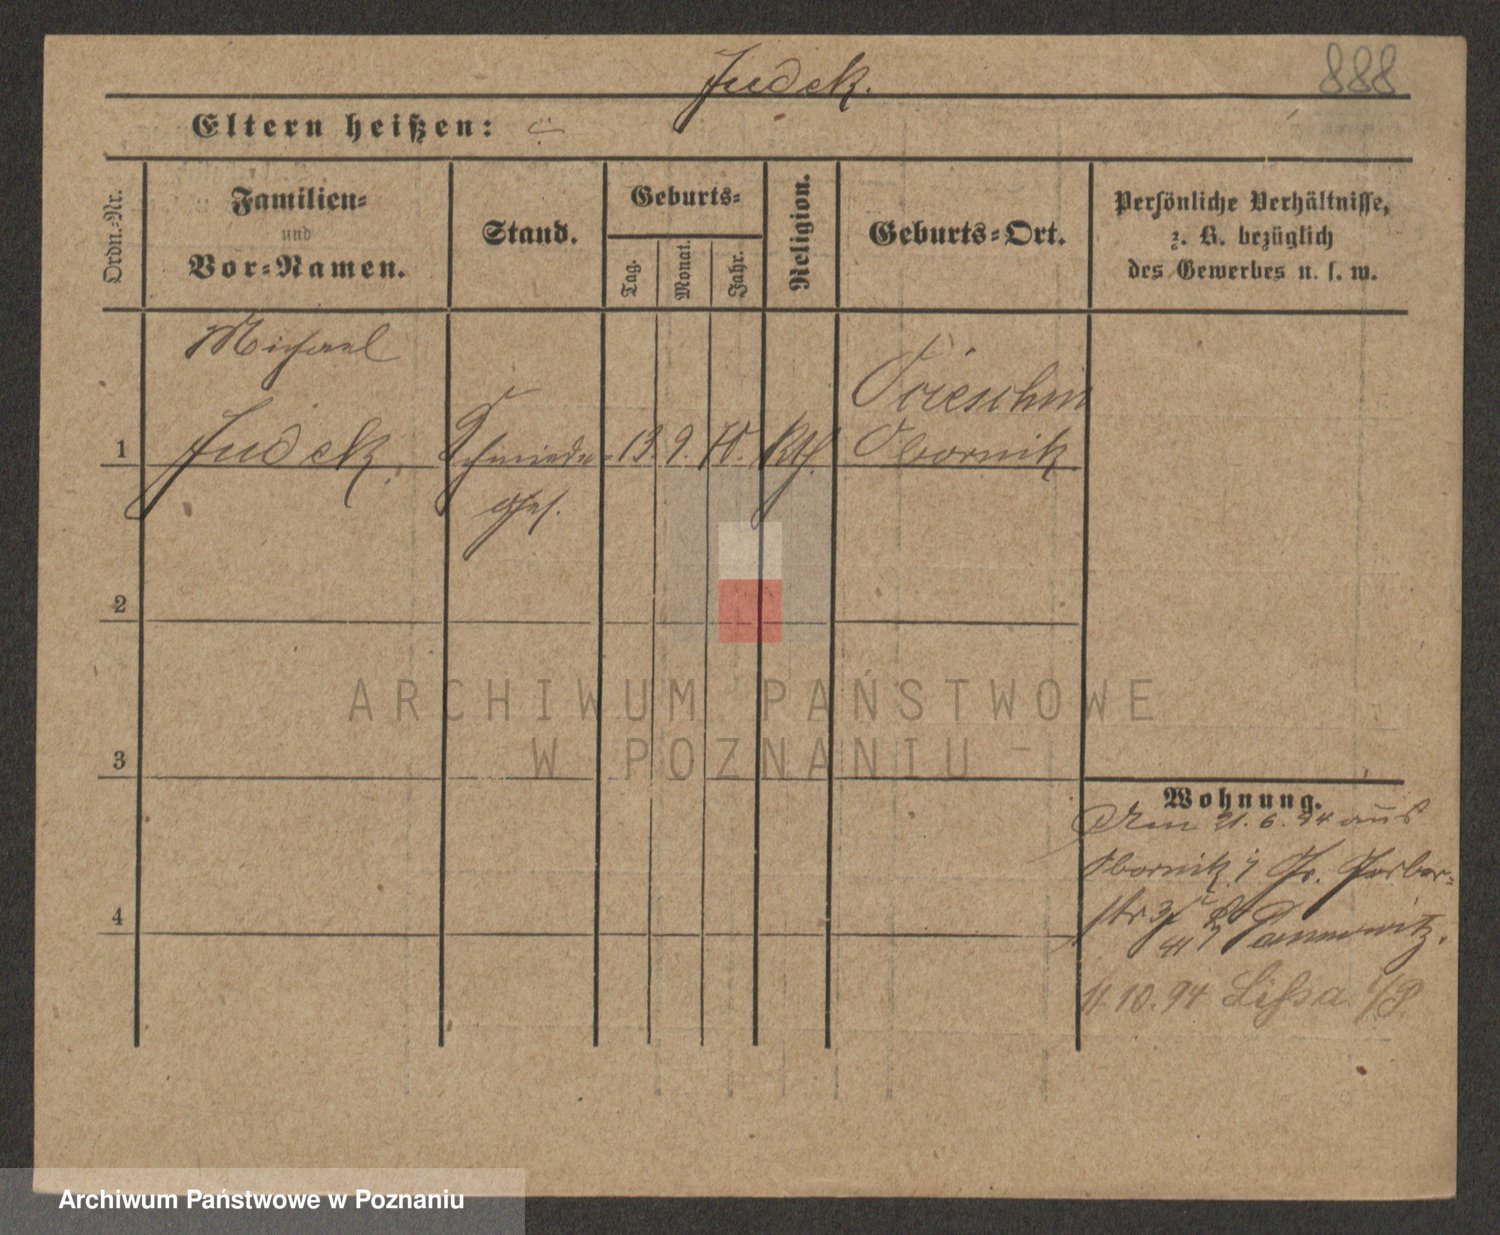 Judek.
888
Eltern heißen:
Ordn.-Nr.
Familien-
und
Vor-Namen.
Stand.
Geburts-
Tag.
Monat.
Jahr.
Religion.
Geburts-Ort.
Persönliche Verhältnisse,
z. B. bezüglich
des Gewerbes u. s. w.
Michael
1 Judek. Schmiede- 13. 9. 70. Kth. Obornik
ges.
2
3
4
Wohnung.
Den 21. 6. 94 aus
Obornik Gr. Gerber-
str
Pannwitz.
11.10.94 Lissa i/P.
ARCHIWUM PAŃSTWOWE
W POZNANIU
Archiwum Państwowe w Poznaniu